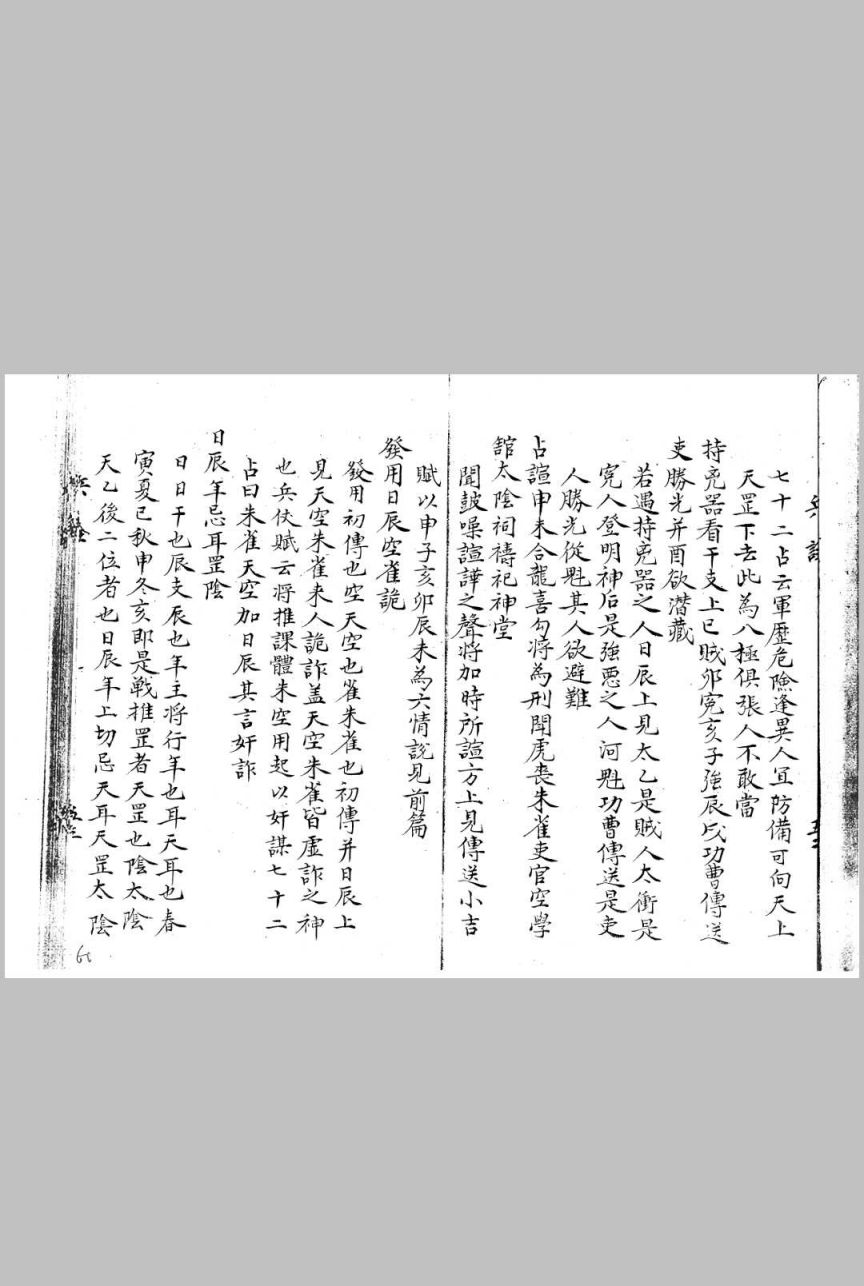 七十二占云軍歷危險逢異人宜防備可向天上
天罡下去此為八極俱張人不敢當
持兇器看干支上巳賊卯寃亥子強辰戌功曹傳送
吏勝光并酉欲潛藏
若遇持兇器之人日辰上見太乙是賊人太衝是
寃人登明神后是強惡之人河魁功曹傳送是吏
人勝光從魁其人欲避難
占諠申未合龍喜勾將為刑聞虎喪朱雀吏官空學
舘太陰祠禱祀神堂
聞鼓噪諠譁之聲將加時所諠方上見傳送小吉
賦以申子亥卯辰未為六情說見前篇
發用日辰空雀詭
發用初傳也空天空也雀朱雀也初傳并日辰上
見天空朱雀来人詭詐盖天空朱雀皆虛詐之神
也兵仗賦云将推課體朱空用起以奸謀七十二
占曰朱雀天空加日辰其言奸詐
日辰年忌耳罡陰
日日干也辰支辰也年主將行年也耳天耳也春
寅夏巳秋申冬亥即是戰推罡者天罡也陰太陰
天乙後二位者也日辰年上切忌天耳天罡太陰